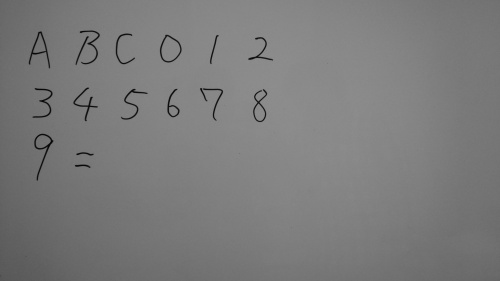 A B C 0 1 2
3 4 5 6 7 8
9 =